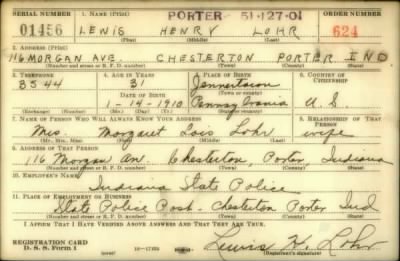 PORTER 51-127-01
SERIAL NUMBER 1. NAME (Print) ORDER NUMBER
01456 LEWIS HENRY LOHR 624
(First) (Middle) (Last)
2. ADDRESS (Print)
116 MORGAN AVE CHESTERTON PORTER IND
(Number and street or R. F. D. number) (Town) (County) (State)
3. TELEPHONE 4. AGE IN YEARS 5. PLACE OF BIRTH 6. COUNTRY OF CITIZENSHIP
3544 31 Jennerstown
DATE OF BIRTH (Town or county)
1-14-1910 Pennsylvania U.S.
(Exchange) (Number) (Mo.) (Day) (Yr.) (State or country)
7. NAME OF PERSON WHO WILL ALWAYS KNOW YOUR ADDRESS 8. RELATIONSHIP OF THAT PERSON
Mrs. Margaret Lois Lohr wife
(Mr., Mrs., Miss) (First) (Middle) (Last)
9. ADDRESS OF THAT PERSON
116 Morgan Av. Chesterton, Porter, Indiana
(Number and street or R. F. D. number) (Town) (County) (State)
10. EMPLOYER'S NAME
Indiana State Police
11. PLACE OF EMPLOYMENT OR BUSINESS
State Police Post - Chesterton Porter Ind
(Number and street or R. F. D. number) (Town) (County) (State)
I AFFIRM THAT I HAVE VERIFIED ABOVE ANSWERS AND THAT THEY ARE TRUE.
REGISTRATION CARD
D. S. S. Form 1 Lewis H. Lohr
(over) (Registrant's signature)